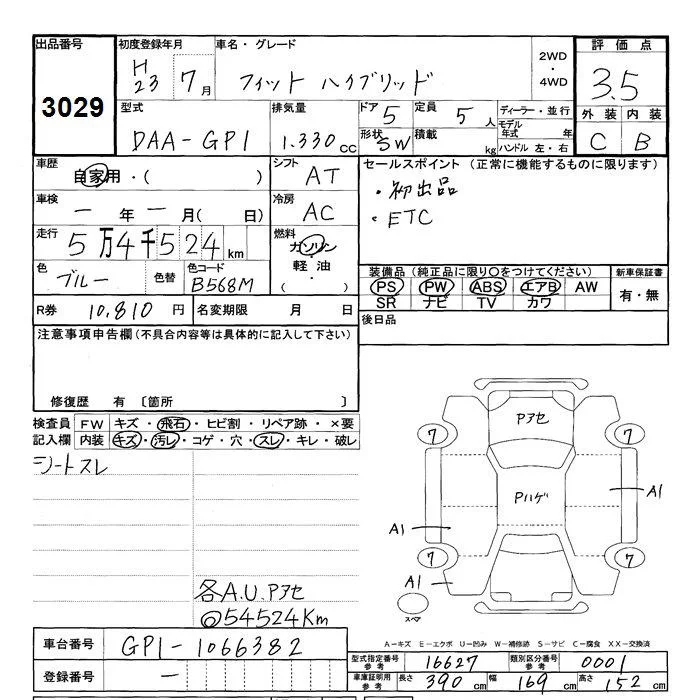 出品番号 初度登録年月 車名・グレード 評価点
3029 H23 7月 フィット ハイブリッド 2WD・4WD 3.5
型式 排気量 ドア 5 定員 5人 ディーラー・並行 外装 内装
DAA-GP1 1.330cc 形状 SW 積載 kg モデル年式 年 ハンドル 左・右 C B
車歴 自家用・( ) シフト AT セールスポイント (正常に機能するものに限ります)
車検 一年一月( 日) 冷房 AC ・初出品
走行 5万4千524km 燃料 ガソリン・軽油・( ) ・ETC
色 ブルー 色替 色コード B568M 装備品 (純正品に限り○をつけてください) 新車保証書
PS PW ABS エアB AW 有・無
SR ナビ TV カワ
R券 10,810円 名変期限 月 日 後日品
注意事項申告欄(不具合内容等は具体的に記入して下さい)
修復歴 有 〔箇所 〕
検査員記入欄 FW キズ・飛石・ヒビ割・リペア跡・×要
内装 キズ・汚レ・コゲ・穴・スレ・キレ・破レ
シートスレ
Pアセ
7 7
Pハゲ
A1
A1
7 7
A1
スペア
各A.U.Pアセ
@54524Km
A-キズ E-エクボ U-凹み W-補修跡 S-サビ C-腐食 XX-交換済
車台番号 GP1-1066382
型式指定番号 参考 16627 類別区分番号 参考 0001
登録番号 一
車庫証明用 参考 長さ 390cm 幅 169cm 高さ 152cm